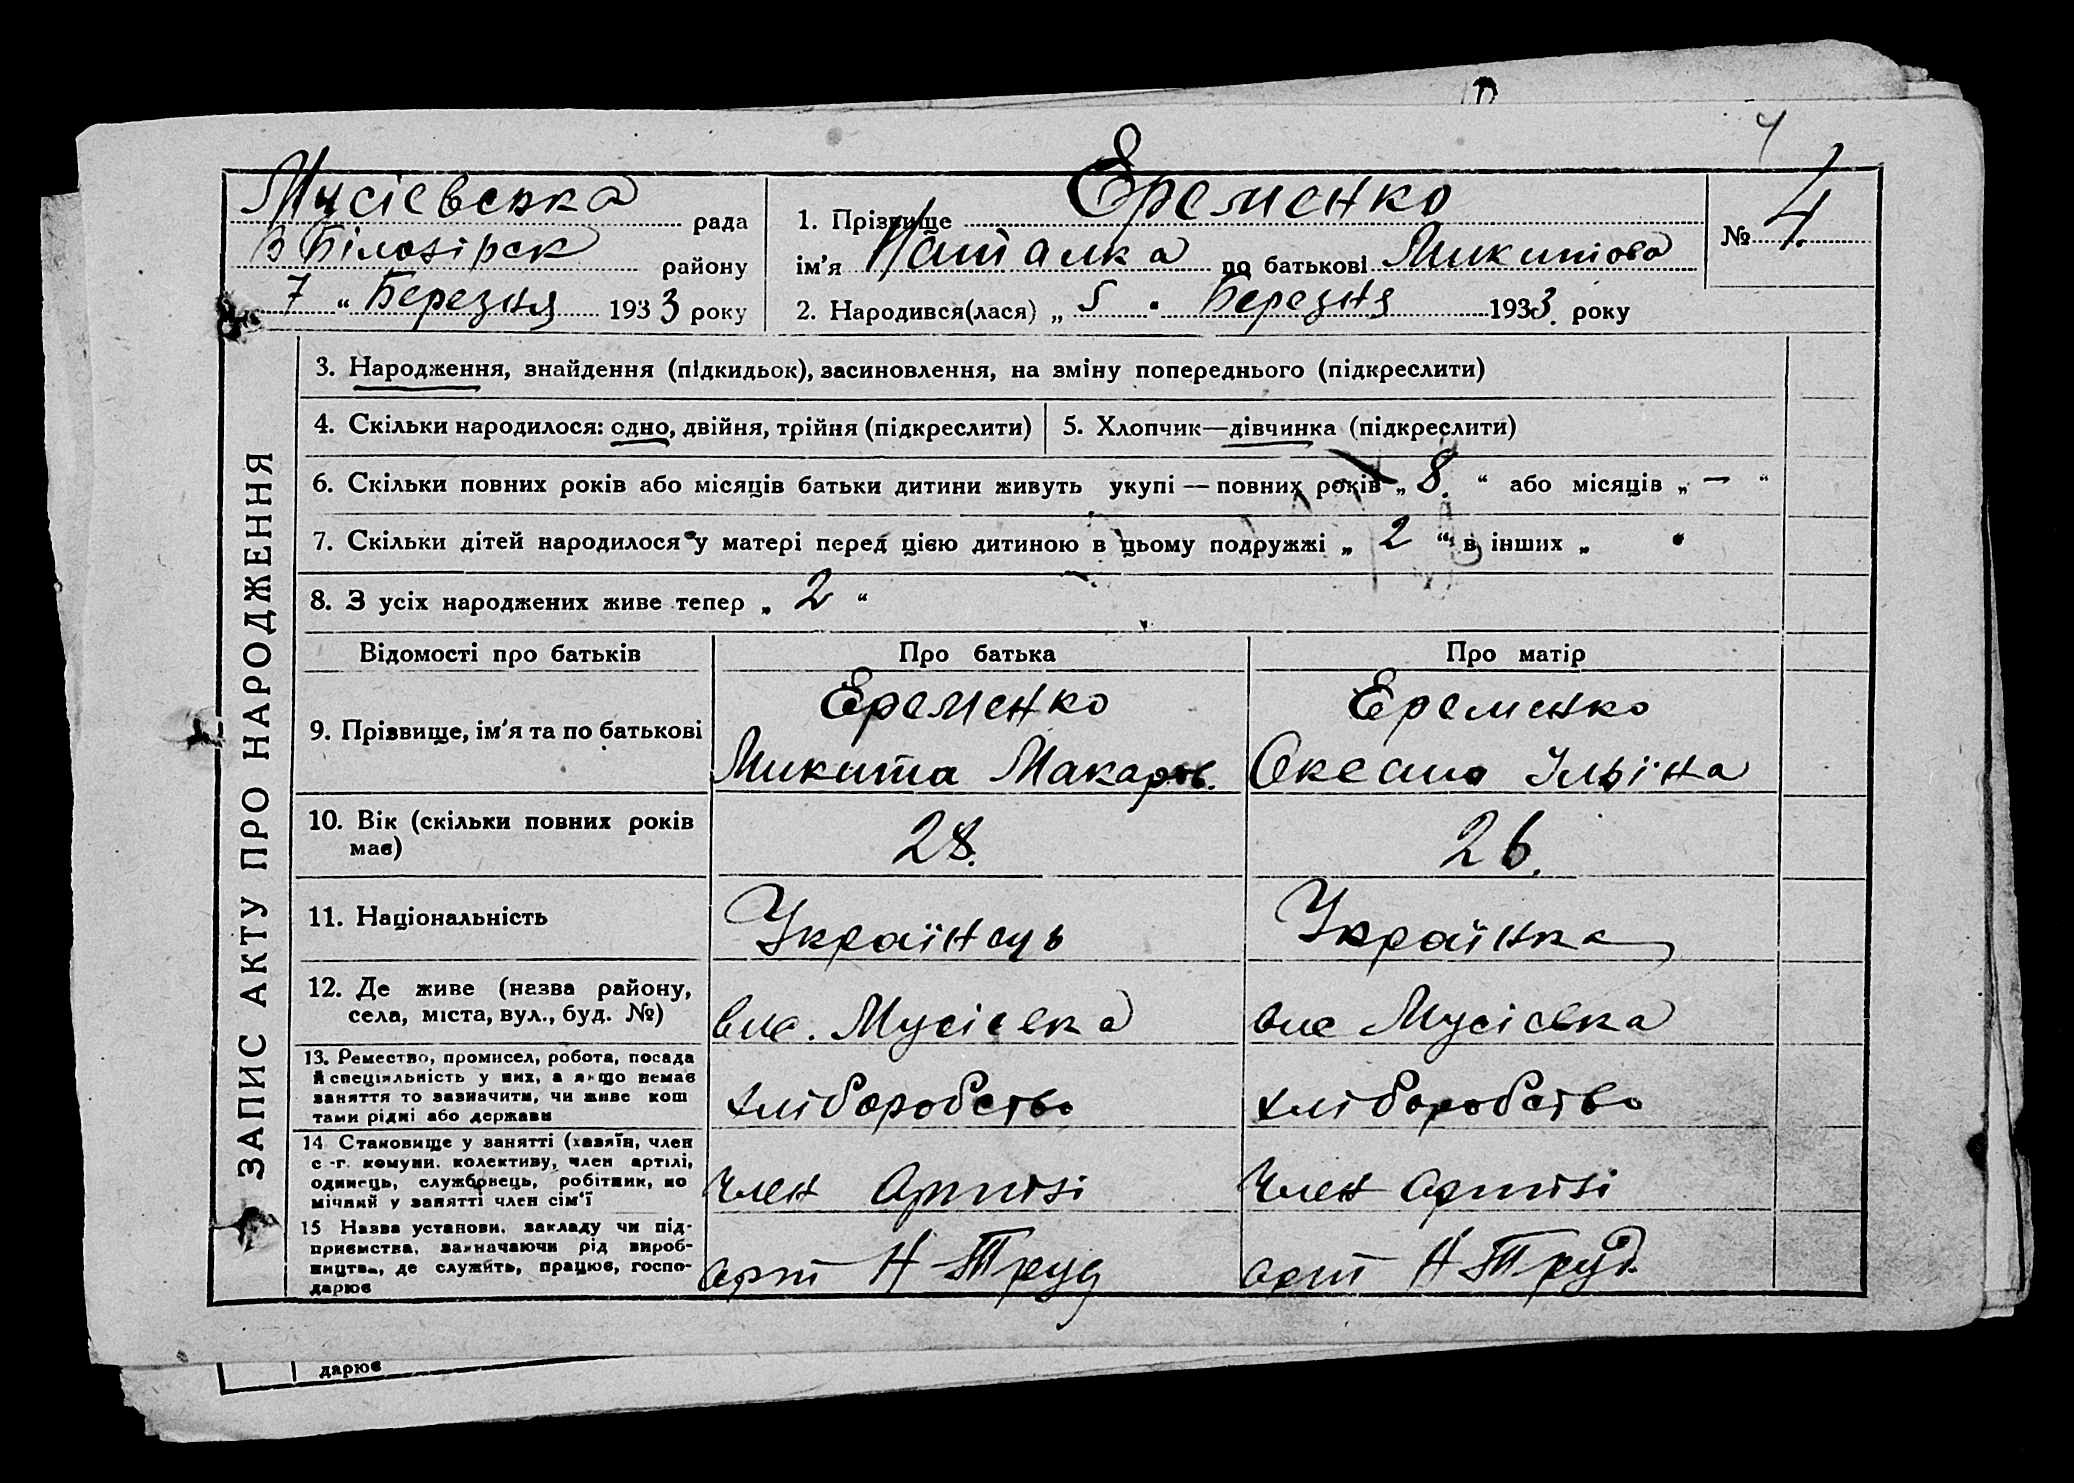 4
Мусієвська рада
В Білозірск району
7 “ Березня 1933 року
1. Прізвище Еременко
ім’я Наталка по батькові Микитова
№ 4
2. Народився(лася) „ 5 “ Березня 1933. року
ЗАПИС АКТУ ПРО НАРОДЖЕННЯ
3. Народження, знайдення (підкидьок), засиновлення, на зміну попереднього (підкреслити)
4. Скільки народилося: одно, двійня, трійня (підкреслити)
5. Хлопчик—дівчинка (підкреслити)
6. Скільки повних років або місяців батьки дитини живуть укупі — повних років „ 8. “ або місяців „ — “
7. Скільки дітей народилося у матері перед цією дитиною в цьому подружжі „ 2 “ в інших „ “
8. З усіх народжених живе тепер „ 2 “
Відомості про батьків
Про батька
Про матір
9. Прізвище, ім’я та по батькові
Еременко
Микита Макаров.
Еременко
Оксана Ільїна
10. Вік (скільки повних років
має)
28.
26.
11. Національність
Українець
Українка
12. Де живе (назва району,
села, міста, вул., буд. №)
вис. Мусієвка
вис Мусієвка
13. Ремество, промисел, робота, посада
й спеціяльність у них, а якщо немає
заняття то зазначити, чи живе кош
тами рідні або держави
хліборобство
хліборобство
14 Становище у занятті (хазяїн, член
с -г. комуни. колективу, член артілі,
одинець, службовець, робітник, по
мічний у занятті член сім’ї
Член Артілі
Член Артілі
15 Назва установи, закладу чи під-
приємства, зазначаючи рід вироб-
ництва, де служить, працює, госпо-
дарює
арт Н-Труд
арт Н-Труд.
дарює